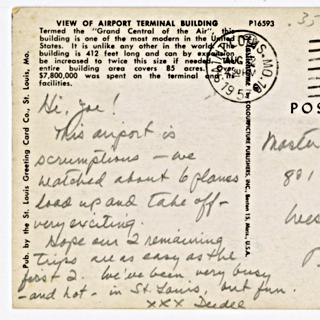 VIEW OF AIRPORT TERMINAL BUILDING P16593
Termed the "Grand Central of the Air", this
building is one of the most modern in the United
States. It is unlike any other in the world. The
building is 412 feet long and can by expansion
be increased to twice this size if needed. The
entire building area covers 85 acres.
$7,800,000 was spent on the terminal and its
facilities.
Hi, Joe!
This airport is
scrumptious - we
watched about 6 planes
load up and take off -
very exciting.
Hope our 2 remaining
trips are as easy as the
first 2. We've been very busy
- and hot - in St. Louis, but fun.
XXX Deedee
Pub. by the St. Louis Greeting Card Co., St. Louis, Mo.
COLOURPICTURE PUBLISHERS, INC., Boston 15, Mass., U.S.A.
ST. LOUIS, MO.
AUG
195
.35
POS
Master
881
Wes